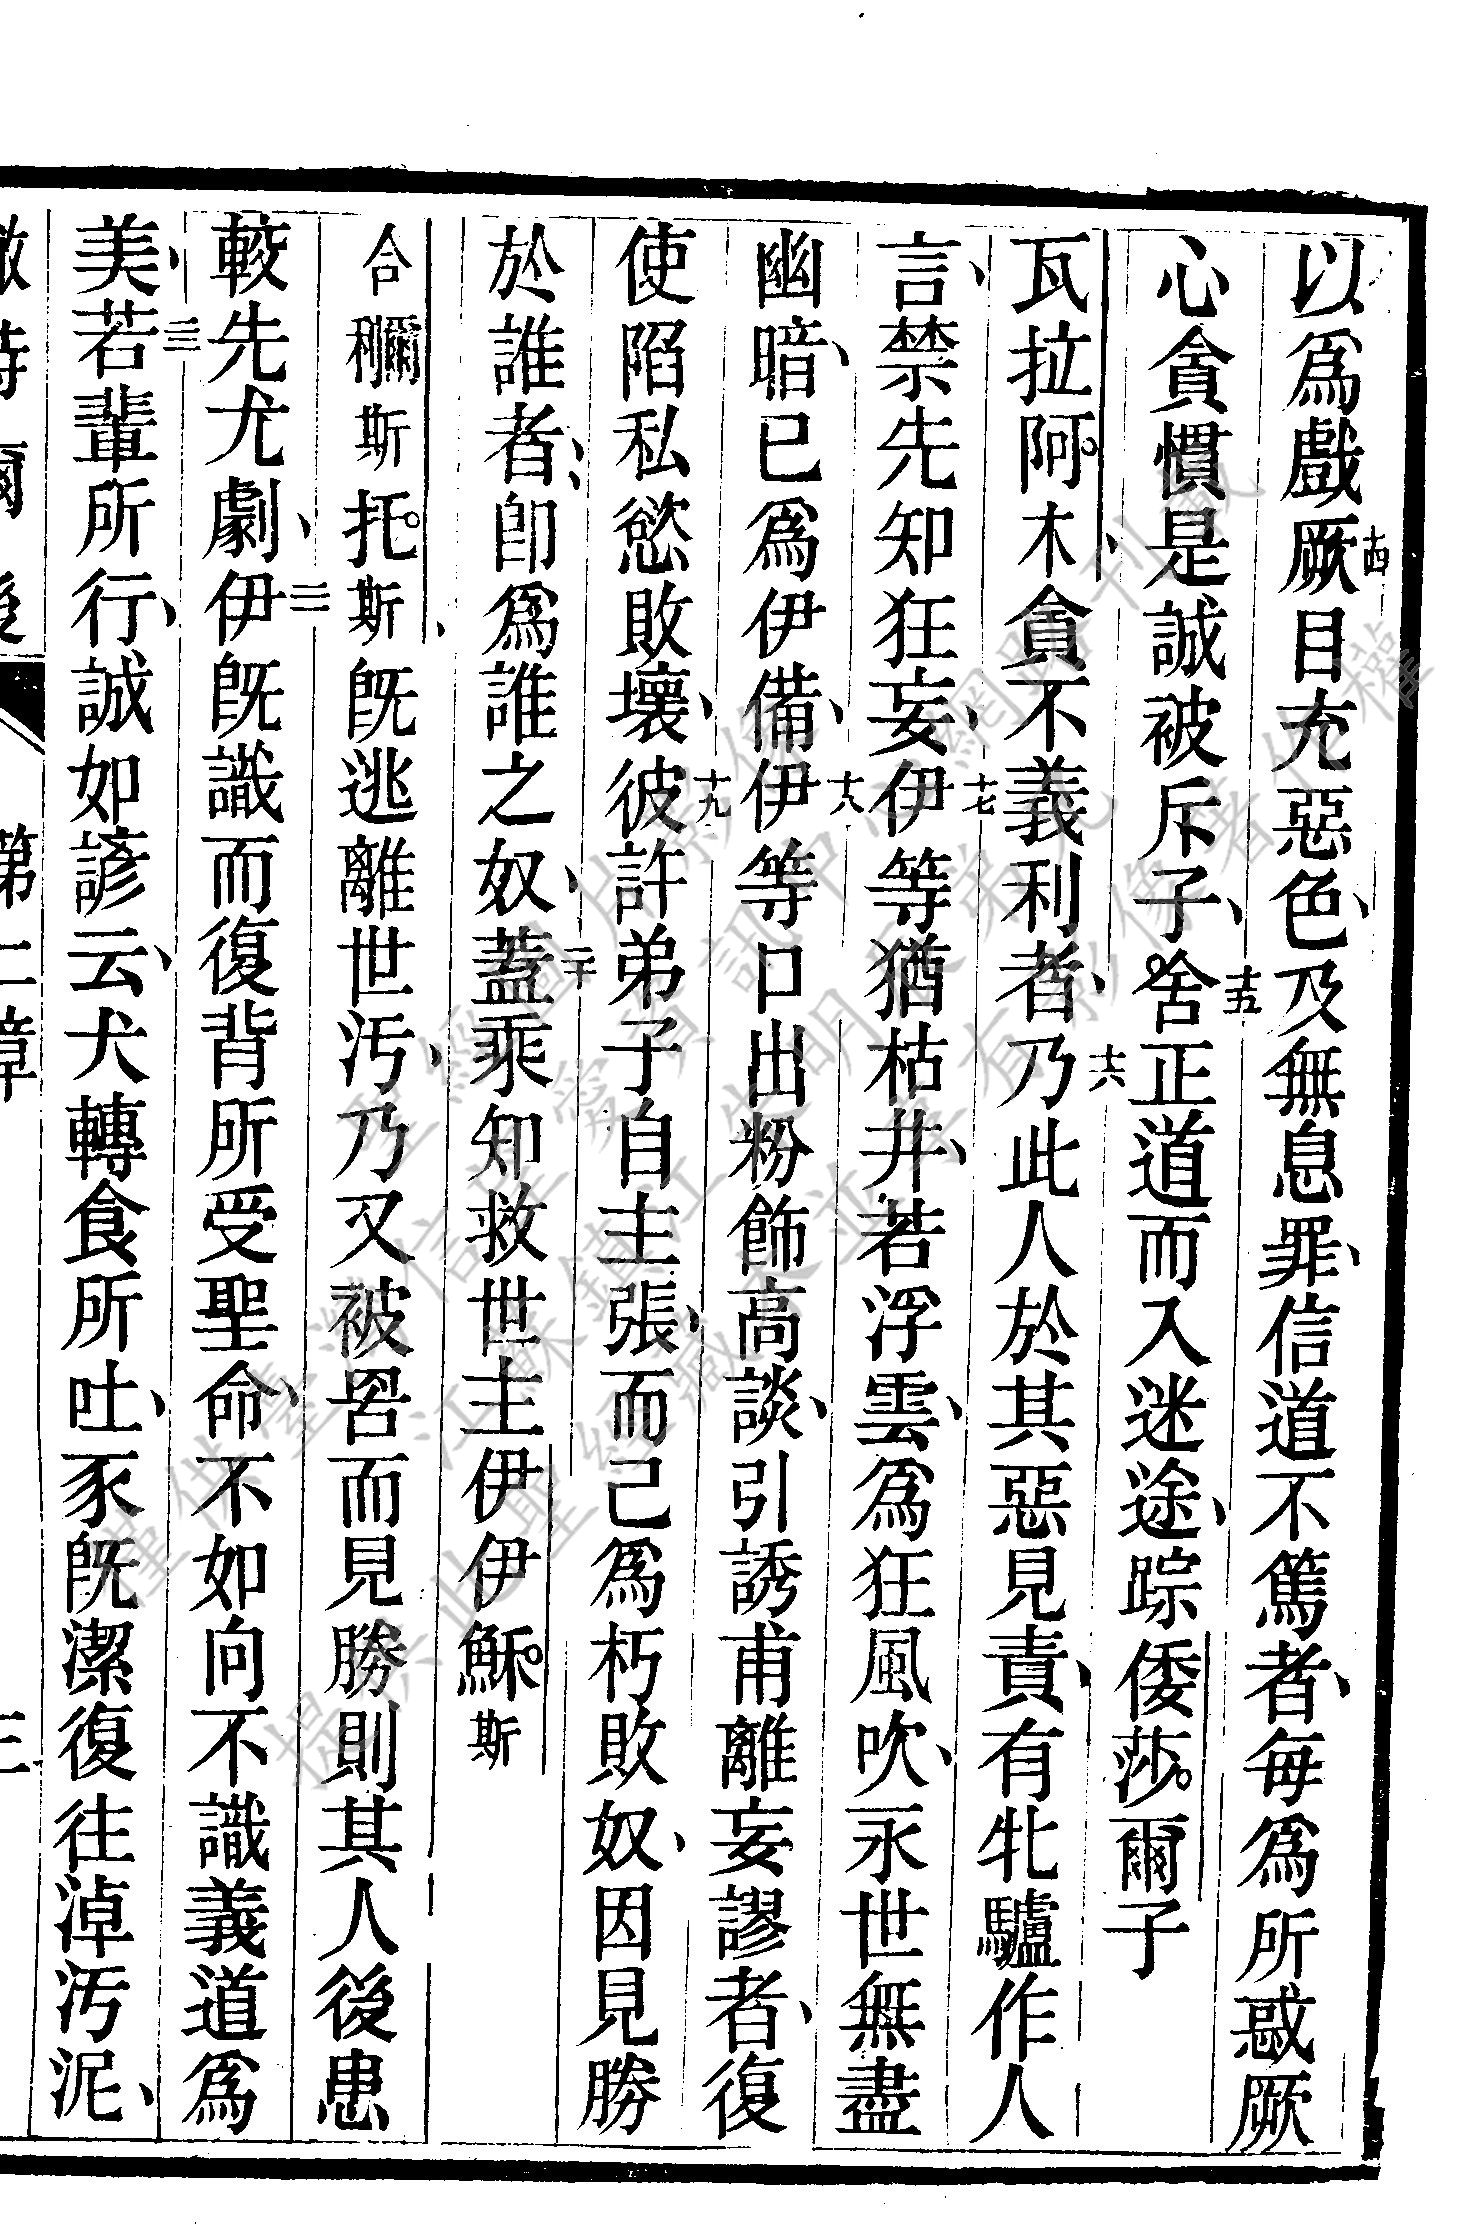 以爲戲十四厥目充惡色、及無息罪、信道不篤者、每爲所惑厥
心貪慣是誠被斥子、十五舍正道而入迷途、踪倭莎爾子
瓦拉阿木、貪不義利者、十六乃此人於其惡見責、有牝驢作人
言、禁先知狂妄、十七伊等猶枯井、若浮雲、爲狂風吹、永世無盡
幽暗、已爲伊備、十八伊等口出粉飾高談、引誘甫離妄謬者、復
使陷私慾敗壞、十九彼許弟子自主張、而己爲朽敗奴、因見勝
於誰者、卽爲誰之奴、二十蓋乘知救世主伊伊穌斯
合利爾斯托斯、旣逃離世汚、乃又被罟而見勝則其人後患
較先尤劇、二一伊旣識而復背所受聖命、不如向不識義道爲
美、二二若輩所行、誠如諺云、犬轉食所吐、豕旣潔復往淖汚泥、
第二章
三